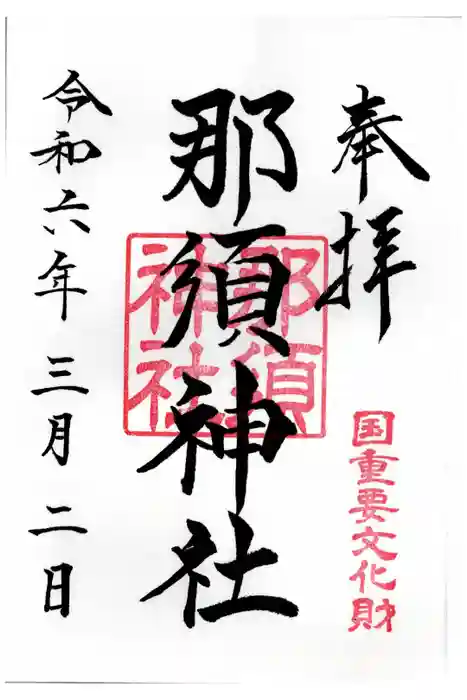 奉拝
国重要文化財
那須神社
那須神社
令和六年三月二日